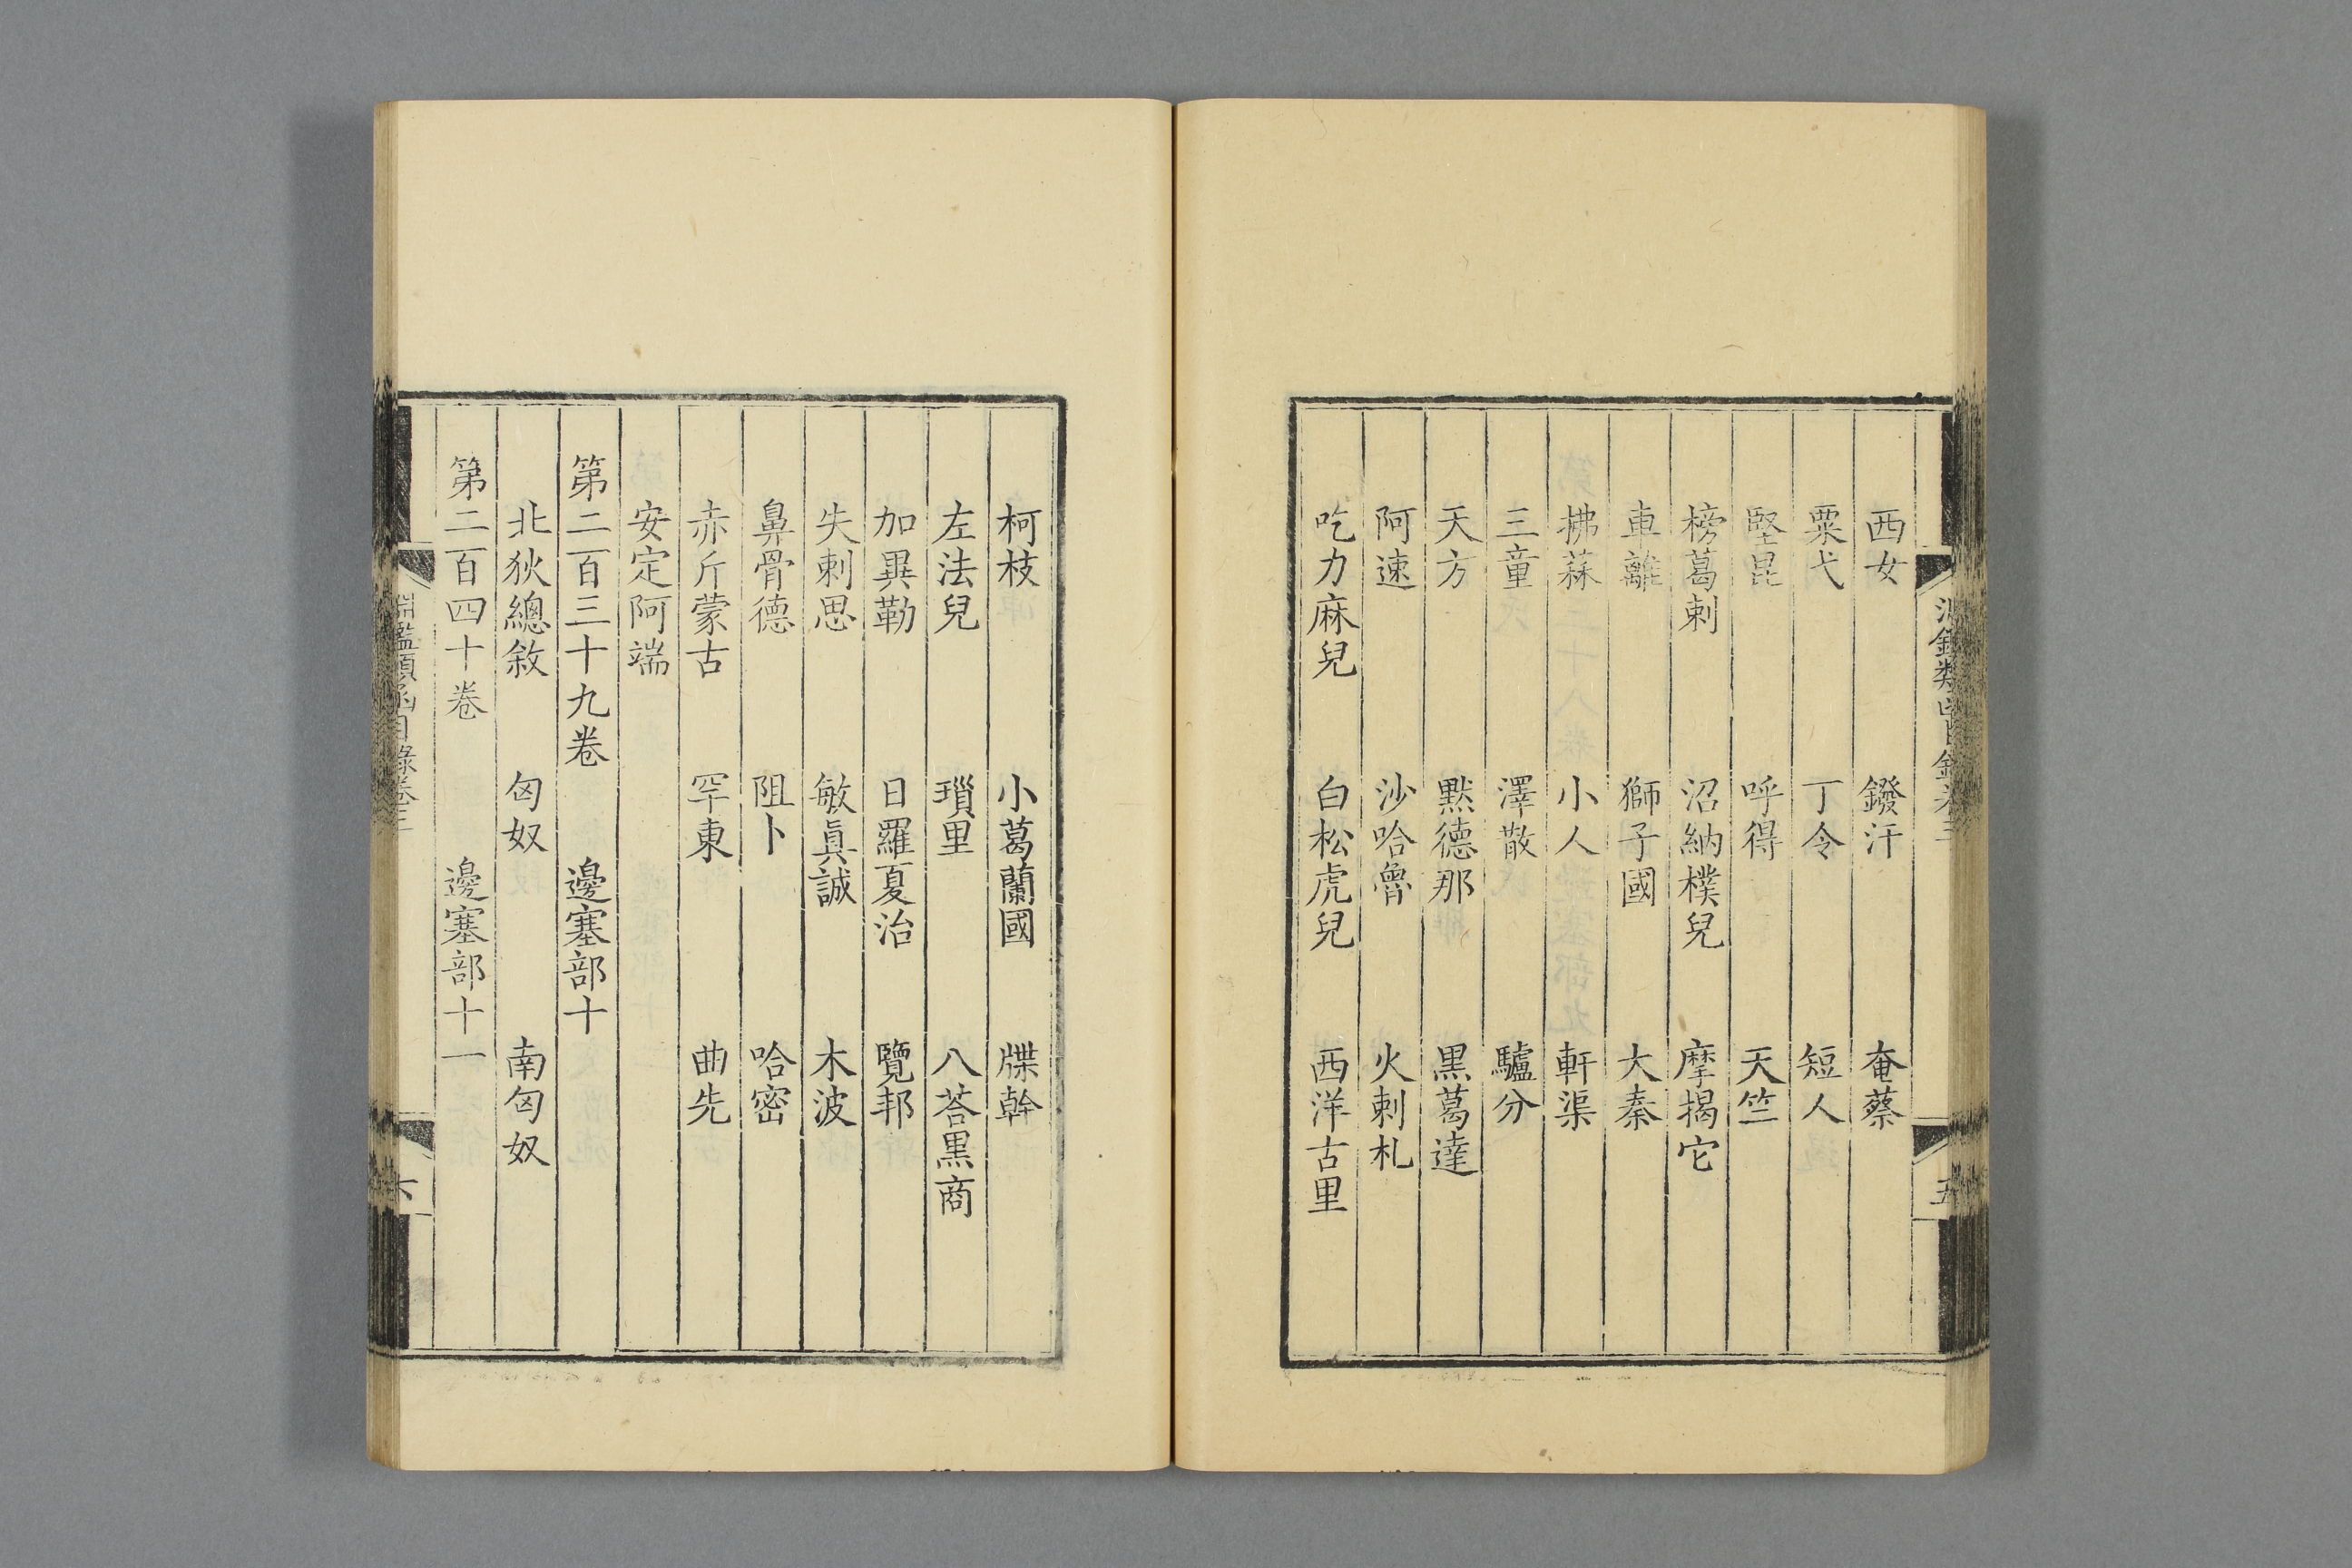 西女 鏺汗 奄蔡
粟弋 丁令 短人
堅昆 呼得 天竺
榜葛剌 沼納樸兒 摩揭它
車離 獅子國 大秦
拂菻 小人 軒渠
三童 澤散 驢分
天方 默德那 黑葛達
阿速 沙哈魯 火剌札
吃力麻兒 白松虎兒 西洋古里
柯枝 小葛蘭國 牒幹
左法兒 瑣里 八荅黑商
加異勒 日羅夏治 覽邦
失剌思 敏眞誠 木波
鼻骨德 阻卜 哈密
赤斤蒙古 罕東 曲先
安定阿端
第二百三十九卷 邊塞部十
北狄總敘 匈奴 南匈奴
第二百四十卷 邊塞部十一
淵鑑類函目錄卷三 六